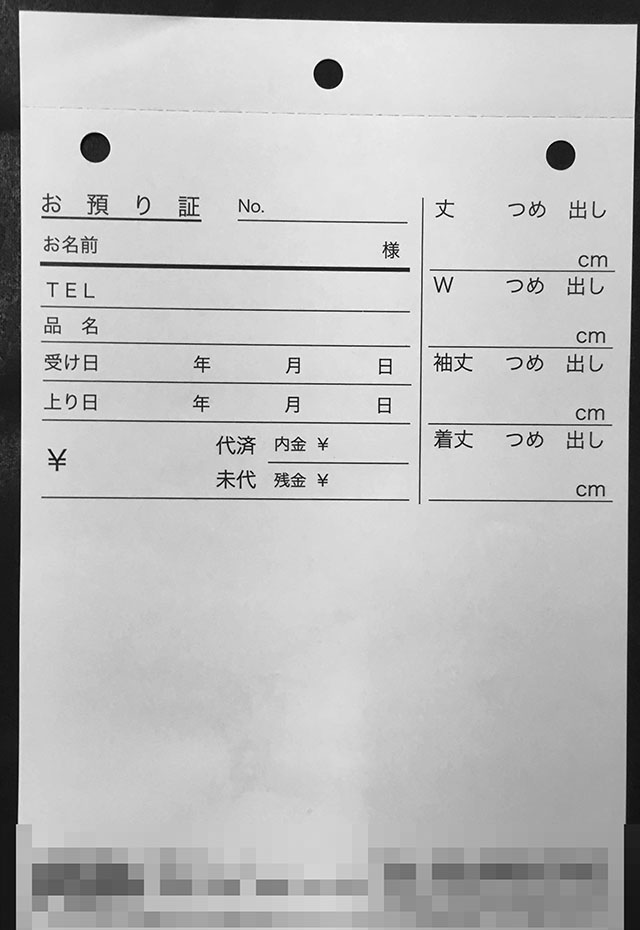 お預り証 No.
お名前 様
TEL
品 名
受け日 年 月 日
上り日 年 月 日
¥ 代済 内金 ¥
未代 残金 ¥
丈 つめ 出し
cm
W つめ 出し
cm
袖丈 つめ 出し
cm
着丈 つめ 出し
cm